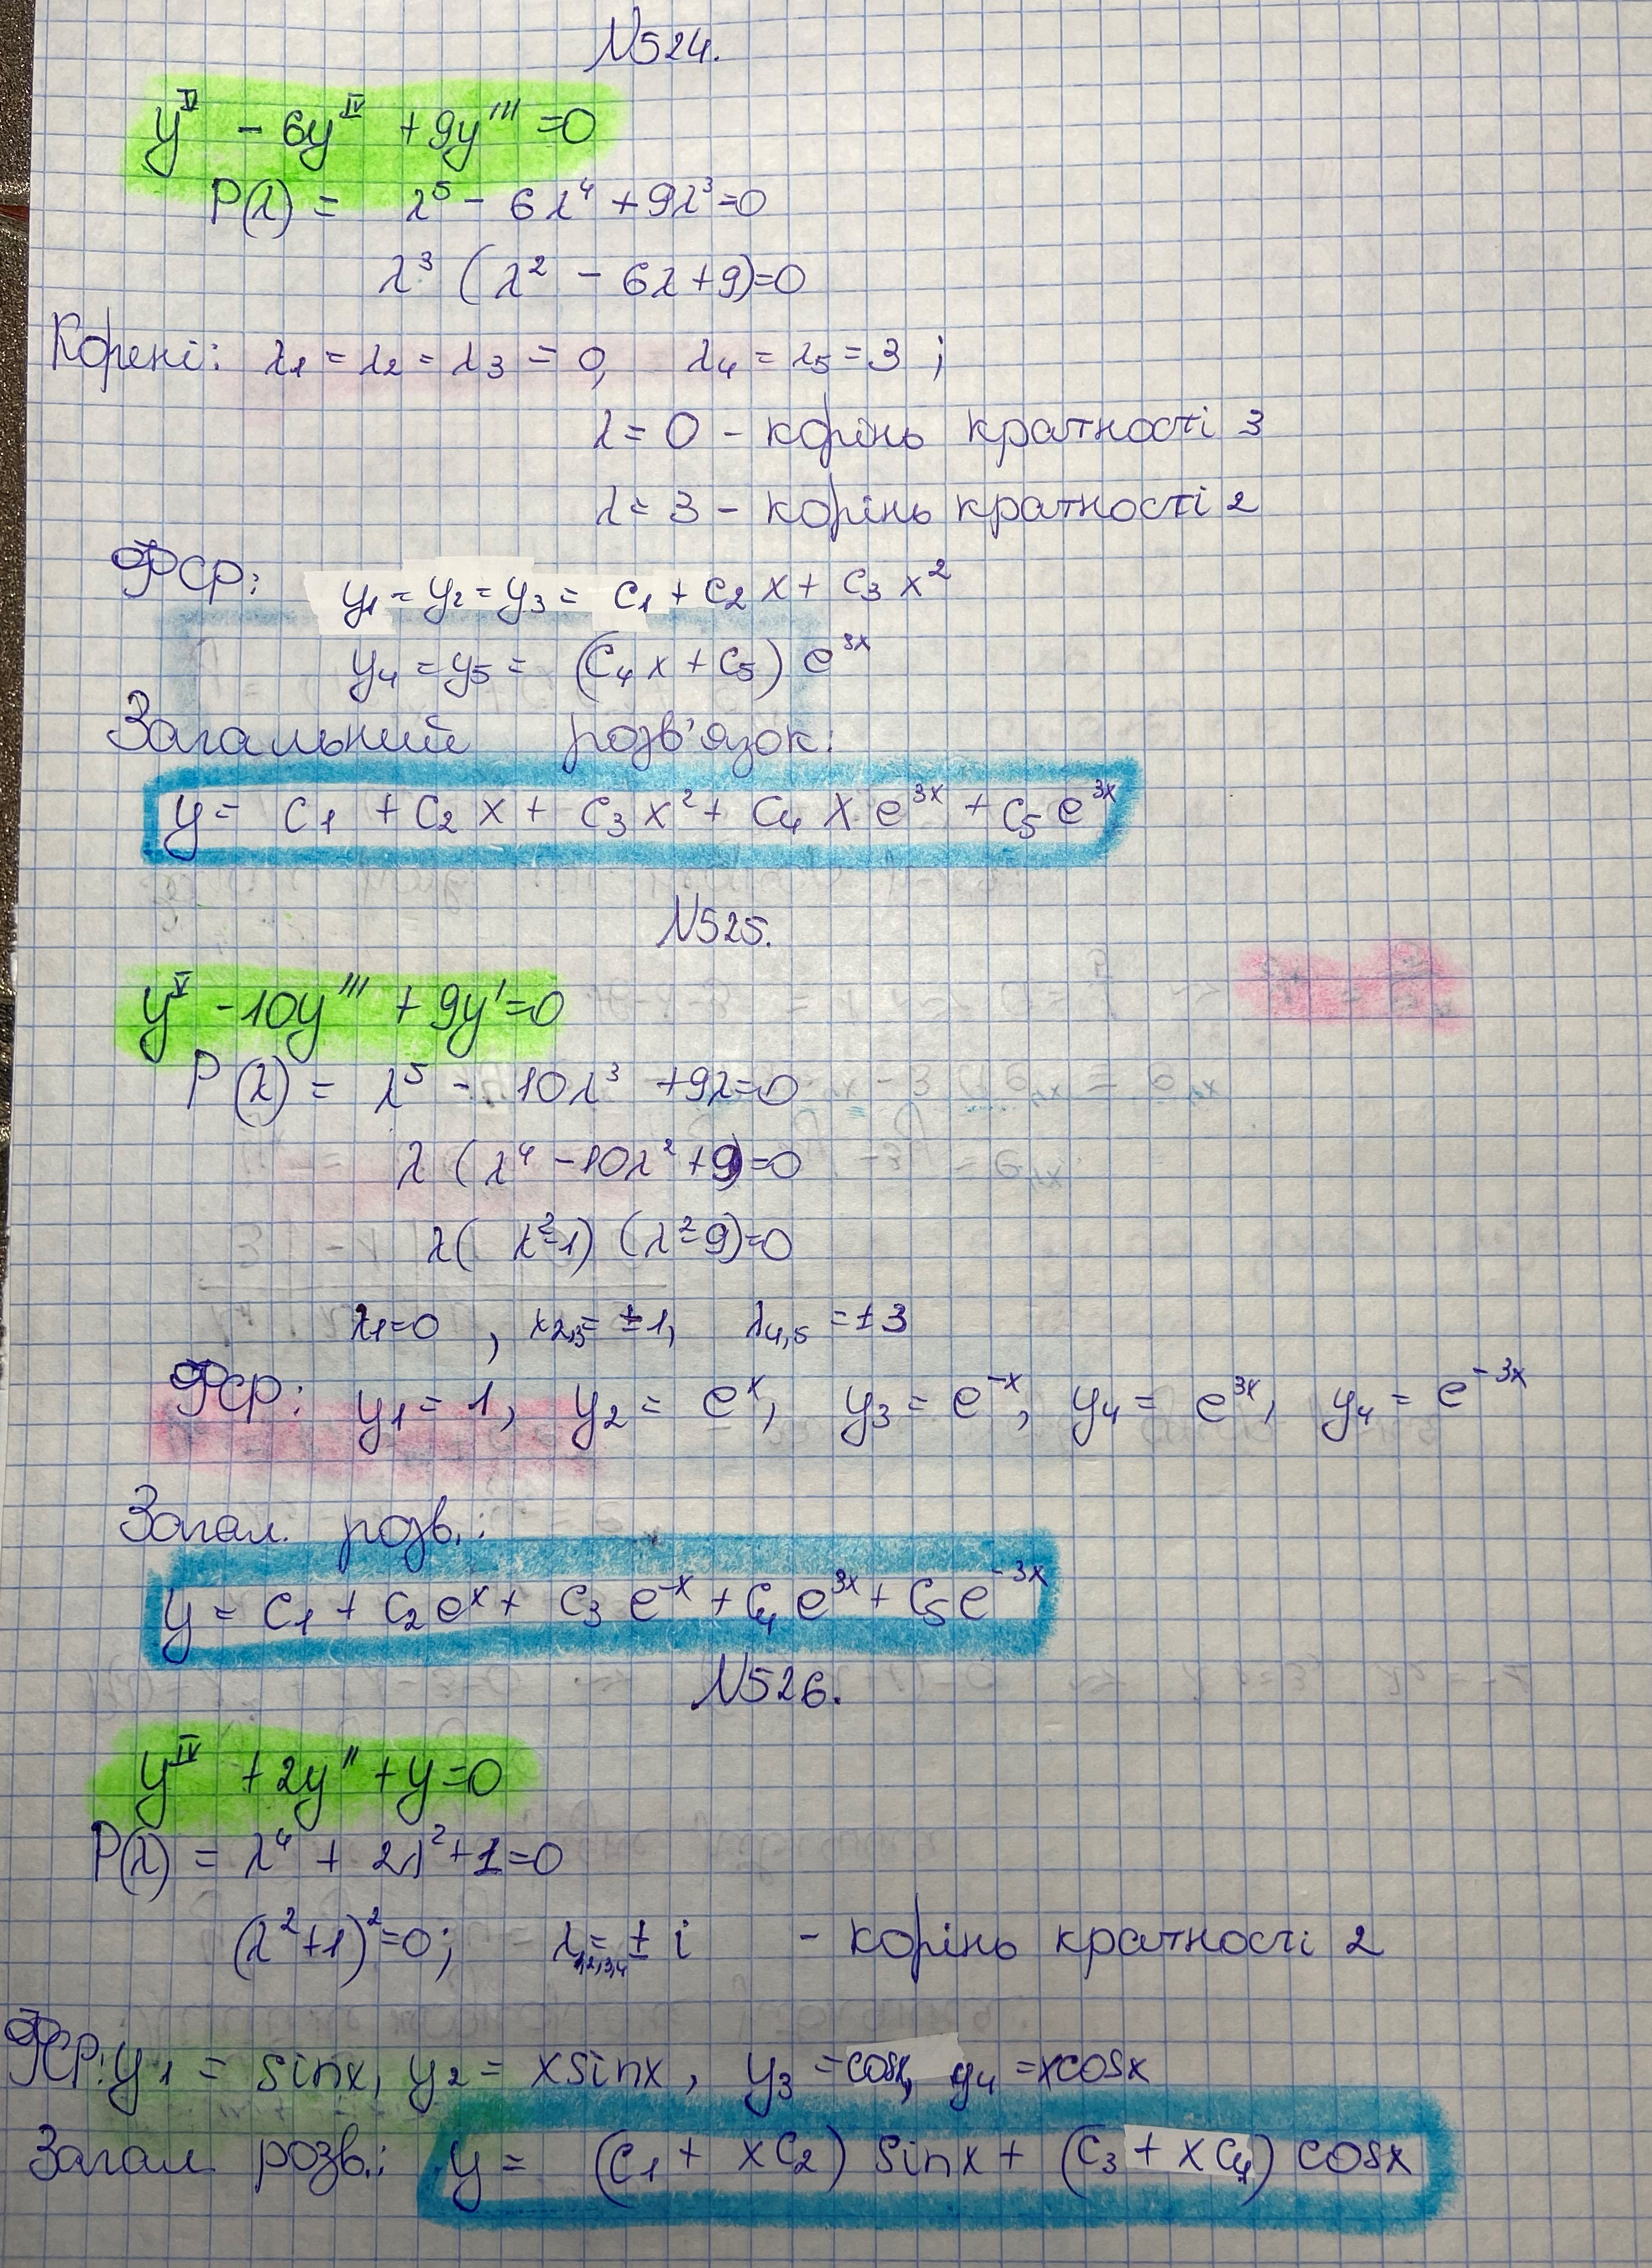 №524.
y^V - 6y^IV + 9y''' = 0
P(λ) = λ^5 - 6λ^4 + 9λ^3 = 0
λ^3 (λ^2 - 6λ + 9) = 0
Корені: λ1 = λ2 = λ3 = 0, λ4 = λ5 = 3 ;
λ = 0 - корінь кратності 3
λ = 3 - корінь кратності 2
ФСР: y1 = y2 = y3 = C1 + C2 x + C3 x^2
y4 = y5 = (C4 x + C5) e^3x
Загальний розв'язок:
y = C1 + C2 x + C3 x^2 + C4 x e^3x + C5 e^3x
№525.
y^V - 10y''' + 9y' = 0
P(λ) = λ^5 - 10λ^3 + 9λ = 0
λ (λ^4 - 10λ^2 + 9) = 0
λ( λ^2-1) (λ^2-9) = 0
λ1=0 , λ2,3= ±1, λ4,5 = ±3
ФСР: y1 = 1, y2 = e^x, y3 = e^-x, y4 = e^3x, y4 = e^-3x
Загал. розв.:
y = C1 + C2 e^x + C3 e^-x + C4 e^3x + C5 e^-3x
№526.
y^IV + 2y'' + y = 0
P(λ) = λ^4 + 2λ^2 + 1 = 0
(λ^2+1)^2 = 0; λ1,2,3,4 = ± i - корінь кратності 2
ФСР: y1 = sinx, y2 = xsinx, y3 = cosx, y4 = xcosx
Загал. розв.: y = (C1 + xC2) sinx + (C3 + xC4) cosx